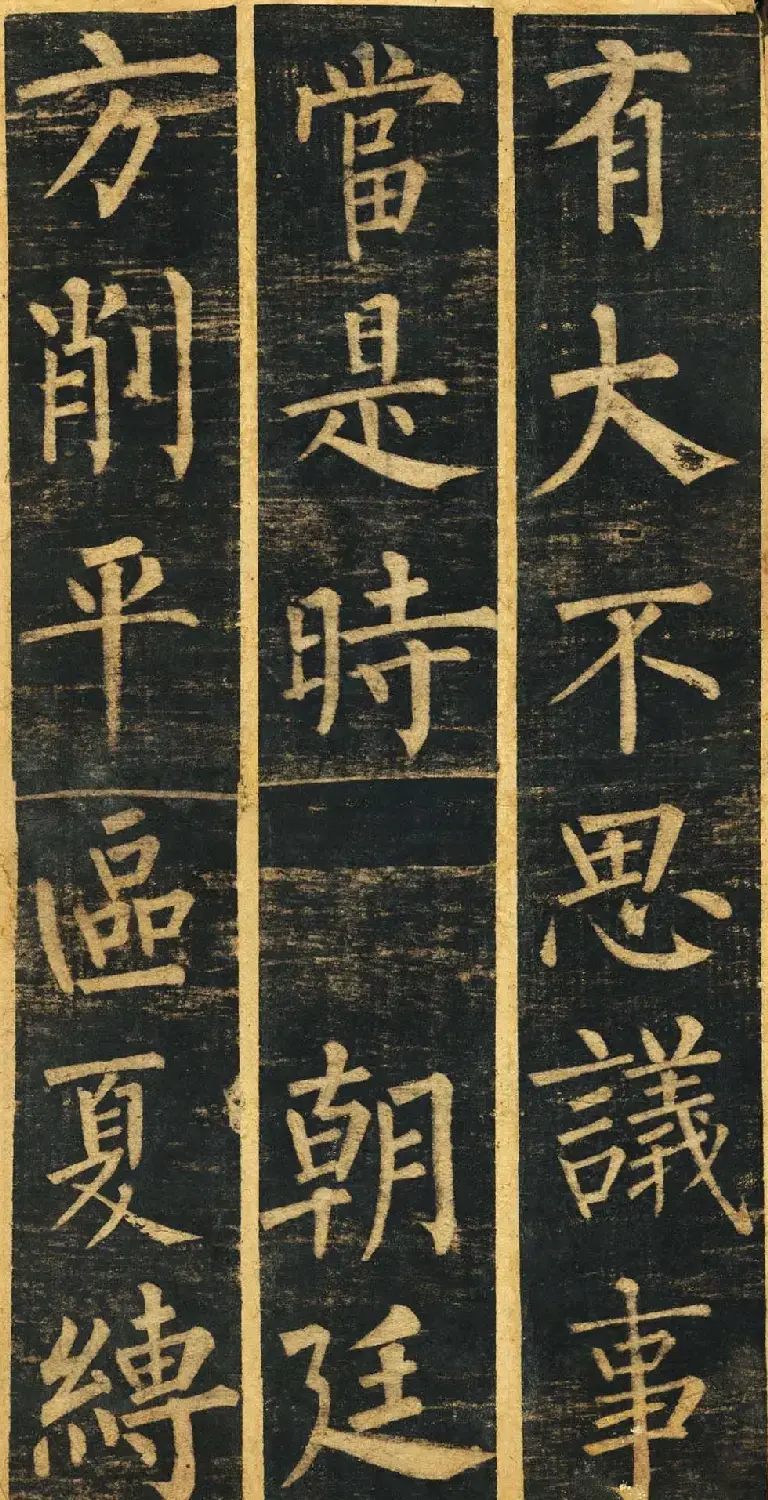 有大不思議事
當是時朝廷
方削平區夏縛